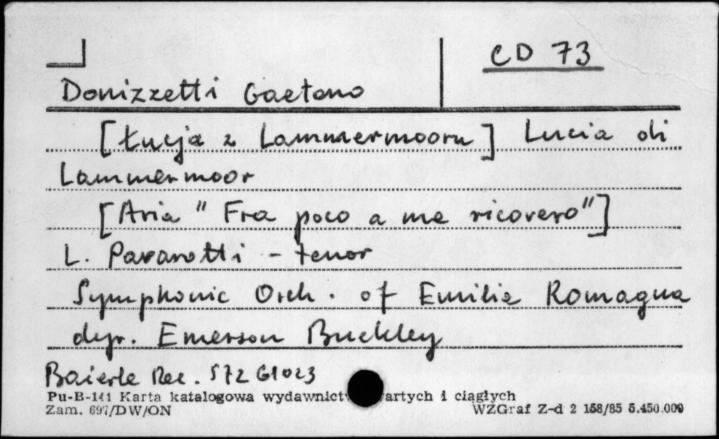 CD 73
Donizzetti Gaetano
[Łucja z Lammermooru] Lucia di
Lammermoor
[Aria "Fra poco a me ricovero"]
L. Pavarotti - tenor
Symphonic Orch. of Emilia Romagna
dyr. Emerson Buckley
Baierle Rec. S72 G1023
Pu-B-141 Karta katalogowa wydawnict artych i ciągłych
Zam. 697/DW/ON WZGraf Z-d 2 158/85 5.450.000